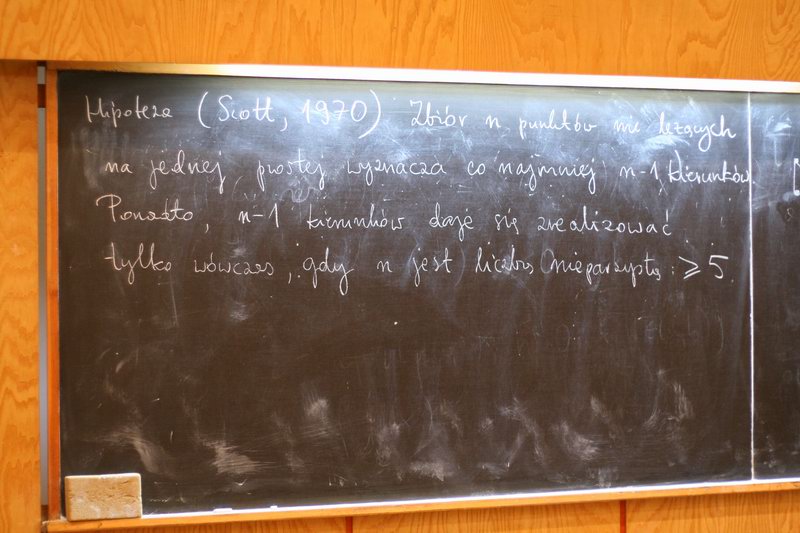 Hipoteza (Scott, 1970) Zbiór n punktów nie leżących
na jednej prostej wyznacza co najmniej n-1 kierunków.
Ponadto, n-1 kierunków daje się zrealizować
tylko wówczas, gdy n jest liczbą nieparzystą ≥ 5.